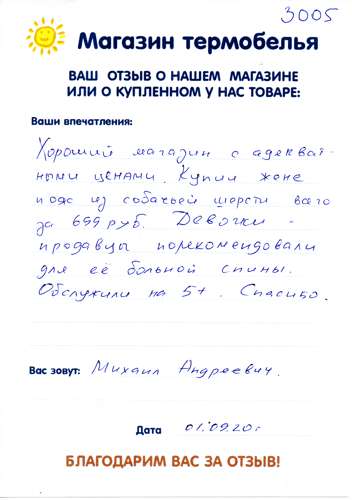 3005
Магазин термобелья
ВАШ ОТЗЫВ О НАШЕМ МАГАЗИНЕ
ИЛИ О КУПЛЕННОМ У НАС ТОВАРЕ:
Ваши впечатления:
Хороший магазин с адекват-
ными ценами. Купил жене
пояс из собачьей шерсти всего
за 699 руб. Девочки -
продавцы порекомендовали
для её больной спины.
Обслужили на 5+. Спасибо.
Вас зовут: Михаил Андреевич.
Дата 01.09.20г
БЛАГОДАРИМ ВАС ЗА ОТЗЫВ!